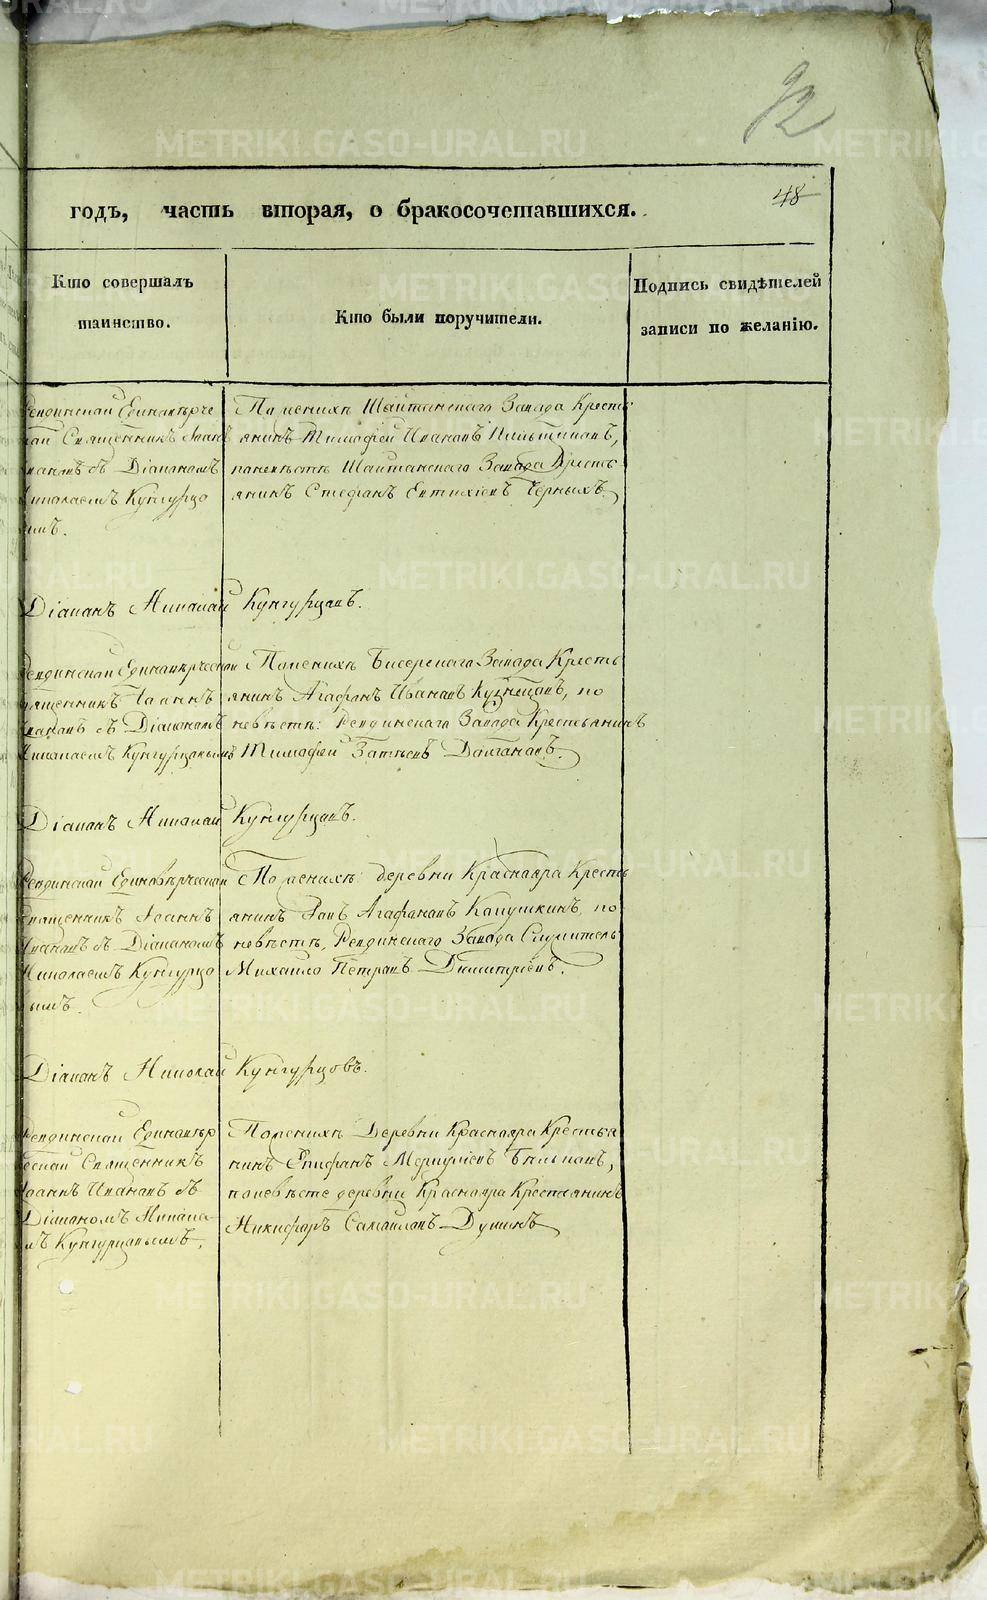 92
48
годъ, часть вторая, о бракосочетавшихся.
Кто совершалъ
таинство.
Кто были поручители.
Подпись свидѣтелей
записи по желанію.
Ревдинскай Единавѣрче
скай Священникъ Іоанъ
Ивановъ съ Діаконамъ
Николаемъ Кунгурцо
вымъ.
Паженихѣ Шайтанскаго Завада Кресть
янинъ Тимофѣй Ивановъ
паневѣстѣ Шайтанскаго Завада Кресть
янинъ Стефанъ Евтихіевъ Черныхъ.
Діаканъ Николай Кунгурцавъ.
Ревдинскай Единавѣрческай
Священникъ Іоаннъ
Ивановъ съ Діакономъ
Николаемъ Кунгурцавымъ
Паженихѣ Бисерскаго Завада Кресть
янинъ Агафанъ Ивановъ Кузнецавъ, по
невѣстѣ: Ревдинскаго Завада Крестьянинъ
Тимофей
Діаканъ Николай Кунгурцавъ.
Ревдинскай Единовѣрческай
Священникъ Іоаннъ
Ивановъ съ Діаканамъ
Николаемъ Кунгурцо
вымъ.
Паженихѣ: деревни Краснаяра Кресть
янинъ Агафанавъ Капушкинъ, по
невѣстѣ, Ревдинскаго Завада Служитель
Михайло Петравъ Димитріевъ.
Діаканъ Николай Кунгурцовъ.
Ревдинскай Единавѣр
ческай Священникъ
Іоаннъ Ивановъ съ
Діаканомъ Никала
мъ Кунгурцавымъ,
Паженихѣ Деревни Краснаяра Крестья
нинъ Епифанъ Меркуліевъ
паневѣсте деревни Краснаяра Крестьянинъ
Никифаръ Самайлавъ Душинъ
METRIKI.GASO-URAL.RU